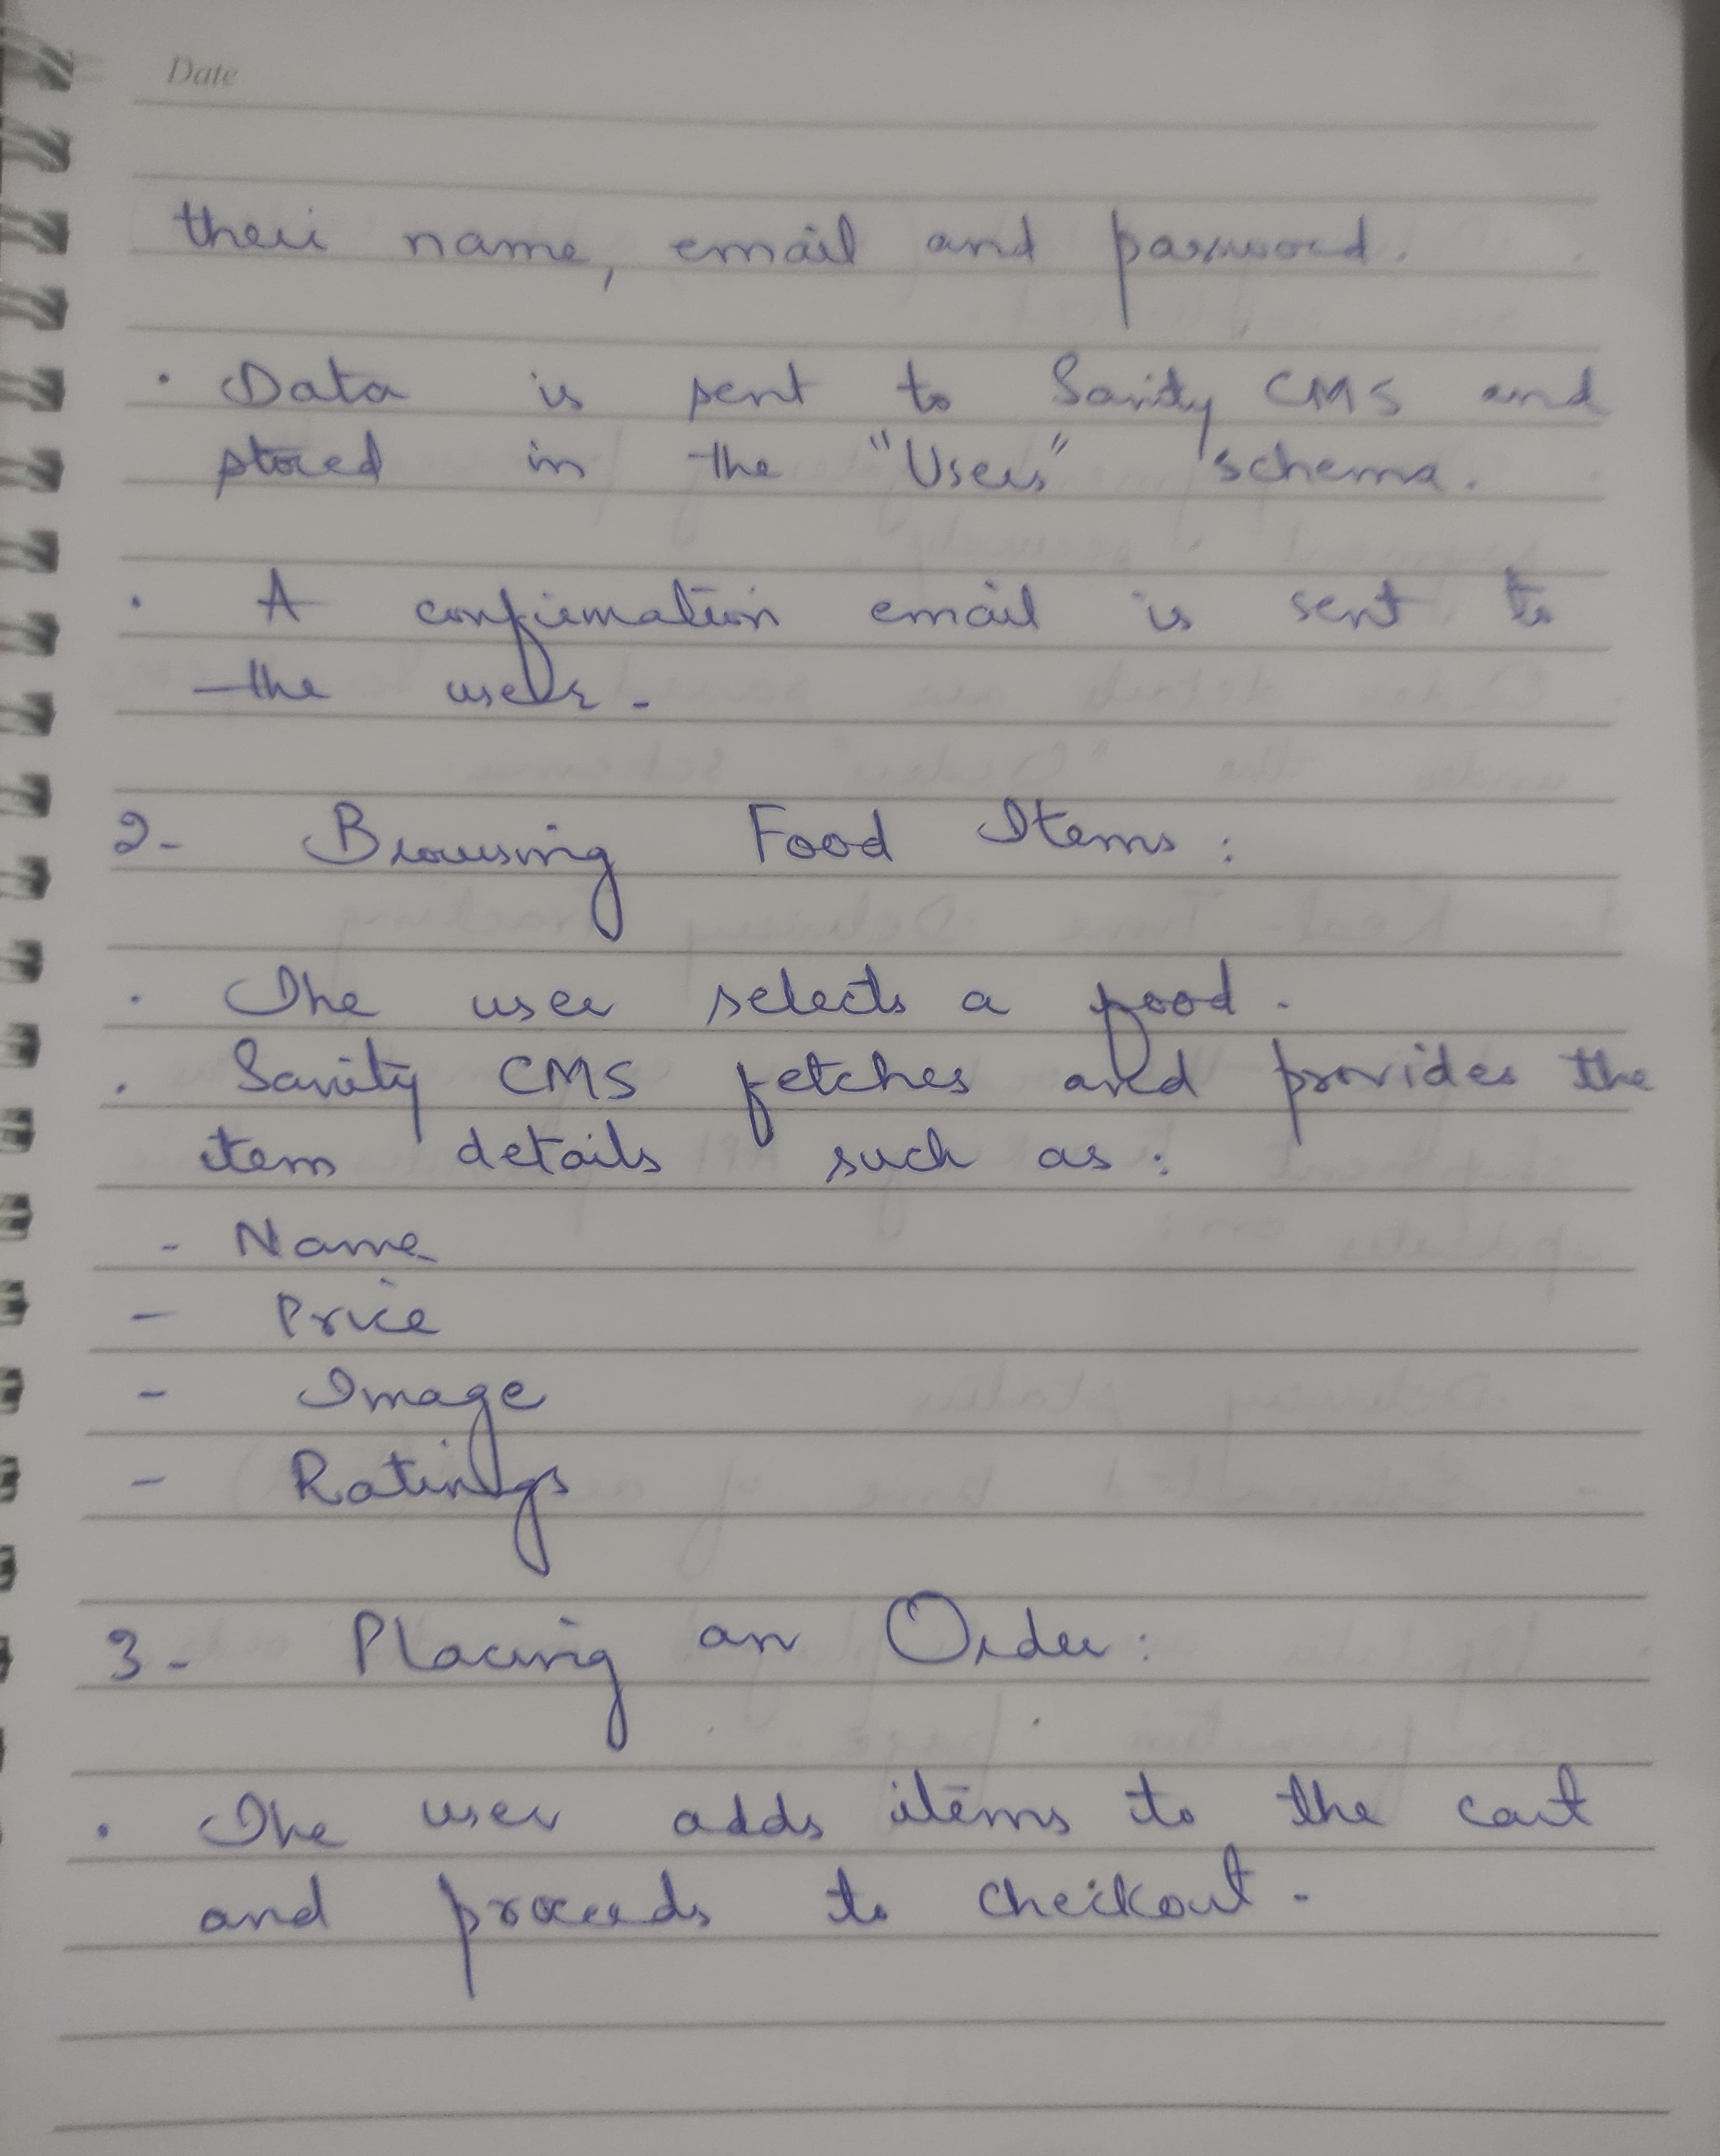 Date
their name, email and password.
· Data is sent to Sanity CMS and
stored in the "Users" schema.
· A confirmation email is sent to
the user.
2- Browsing Food Items:
· The user selects a food.
· Sanity CMS fetches and provides the
item details such as:
- Name
- Price
- Image
- Ratings
3- Placing an Order:
· The user adds items to the cart
and proceeds to checkout.